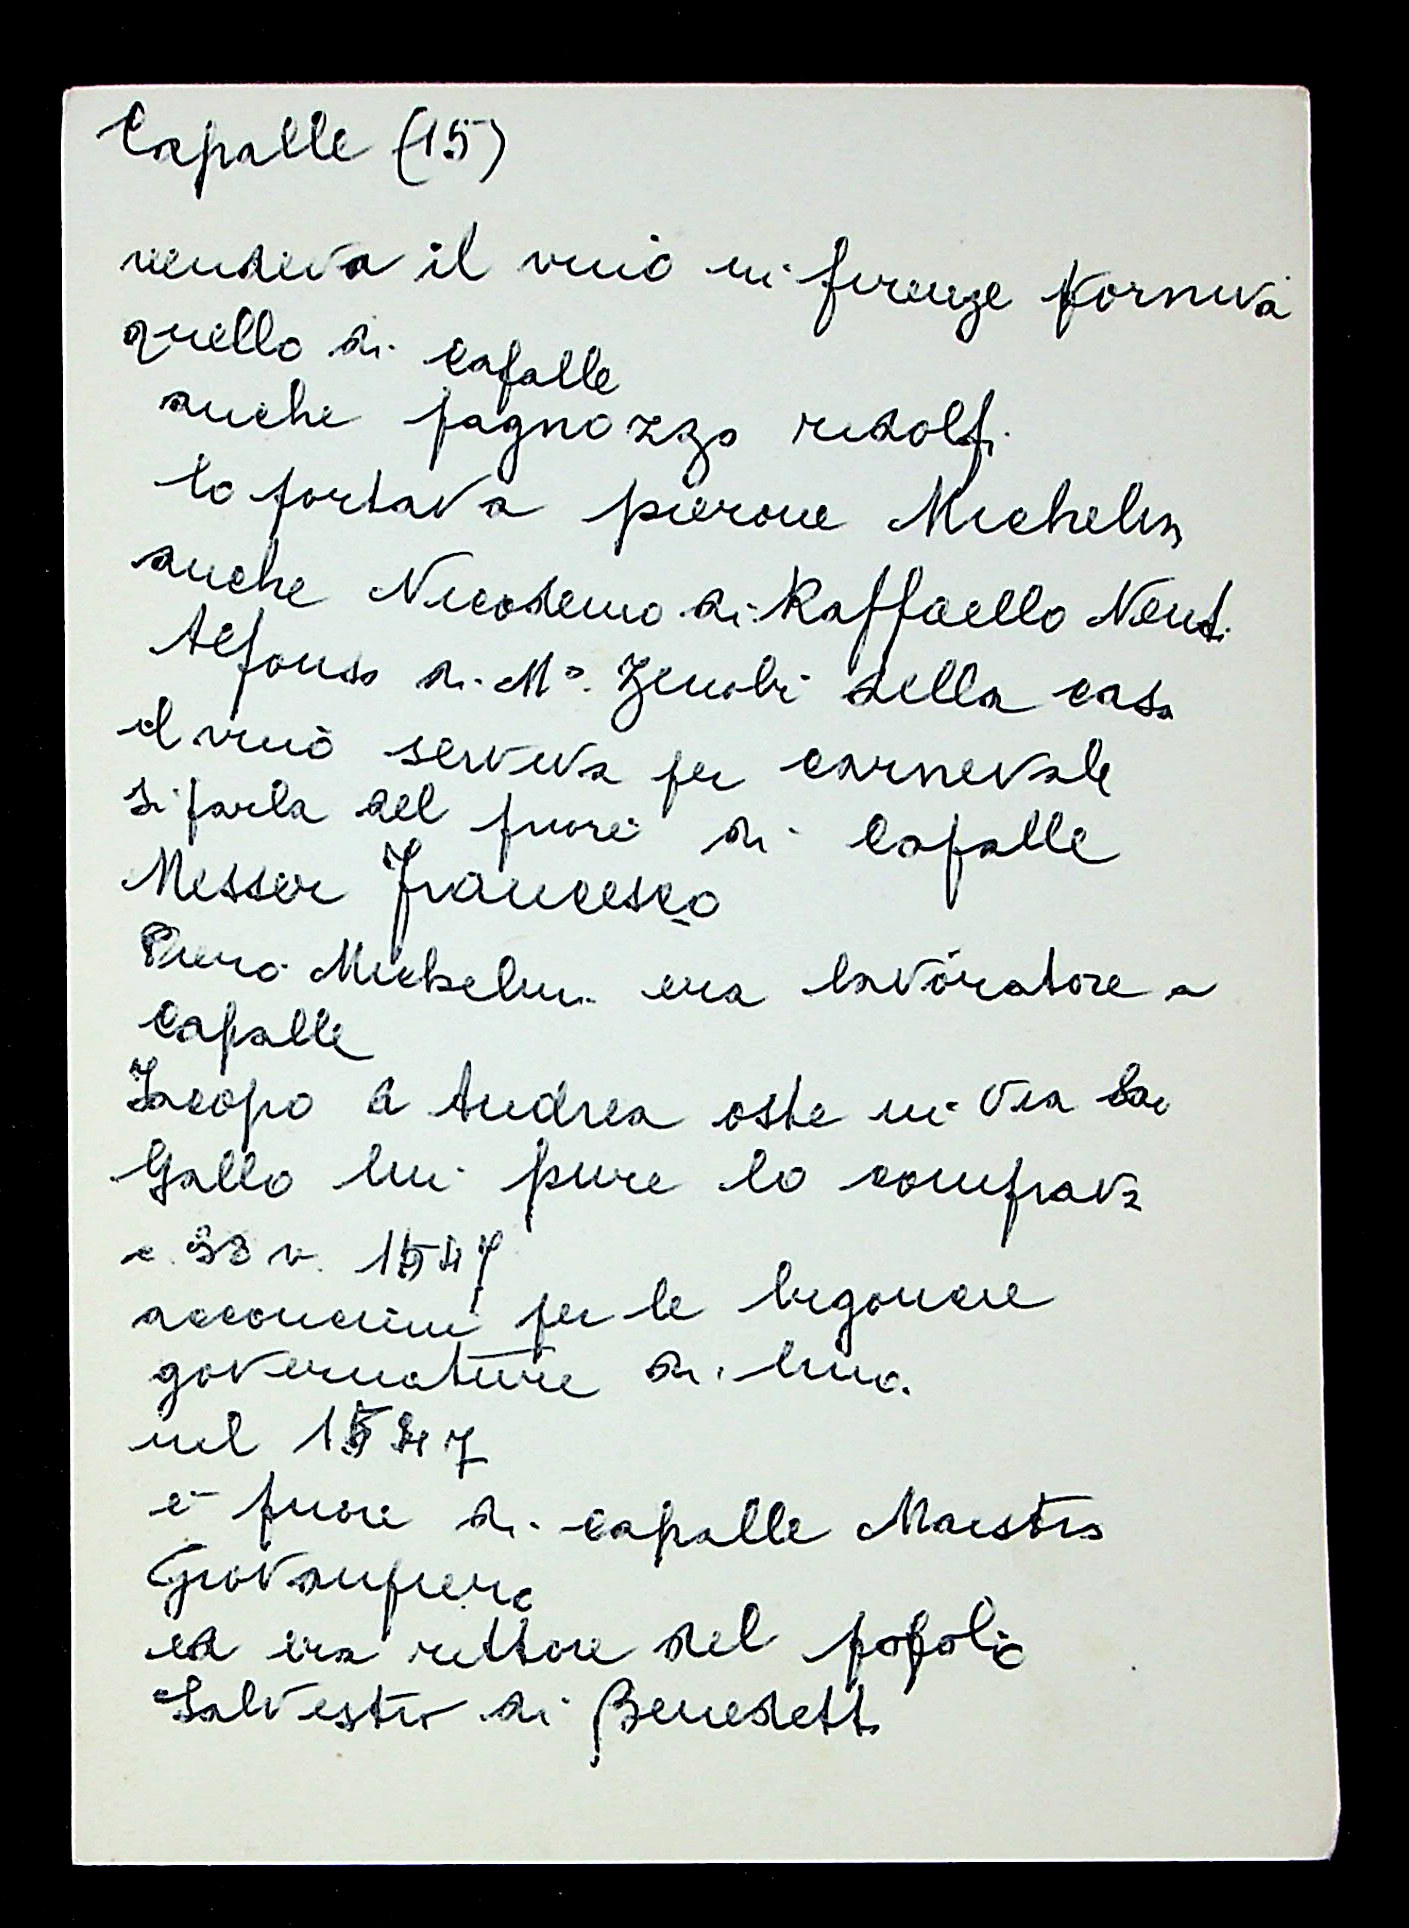 Capalle (15)
vendeva il vino in firenze forniva
quello di capalle
anche pagnozzo ridolfi
lo portava pierone Michelin
anche Nicodemo di Raffaello
Alfonso di M°. Zenobi della casa
il vino serviva per carnevale
si parla del priore di Capalle
Messer Francesco
Piero Michelini era lavoratore a
Capalle
Iacopo d Andrea oste in Via San
Gallo lui pure lo comprava
c. 38 v. 1547
acconcimi per le bigoncie
governature di lino.
nel 1547
è priore di capalle Maestro
Giovanpiero
ed era rettore del popolo
Salvestro di Benedetto